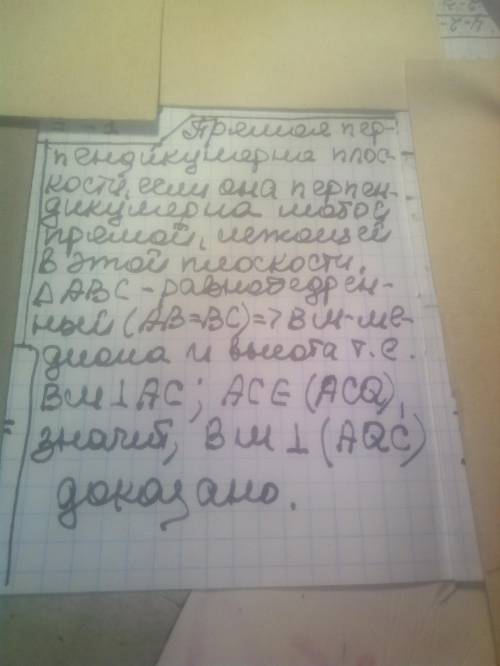 Прямая пер-
пендикулярна плос-
кости, если она перпен-
дикулярна любой
прямой, лежащей
в этой плоскости.
ΔABC - равнобедрен-
ный (AB=BC)=> BM-ме-
диана и высота т.е.
BM⊥AC; AC∈(ACQ),
значит, BM⊥(AQC)
доказано.